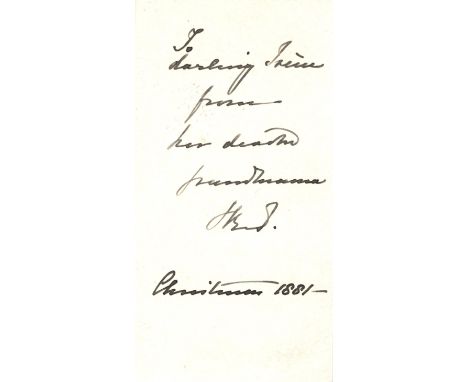 To
darling Irène
from
her devoted
grandmama

Christmas 1881